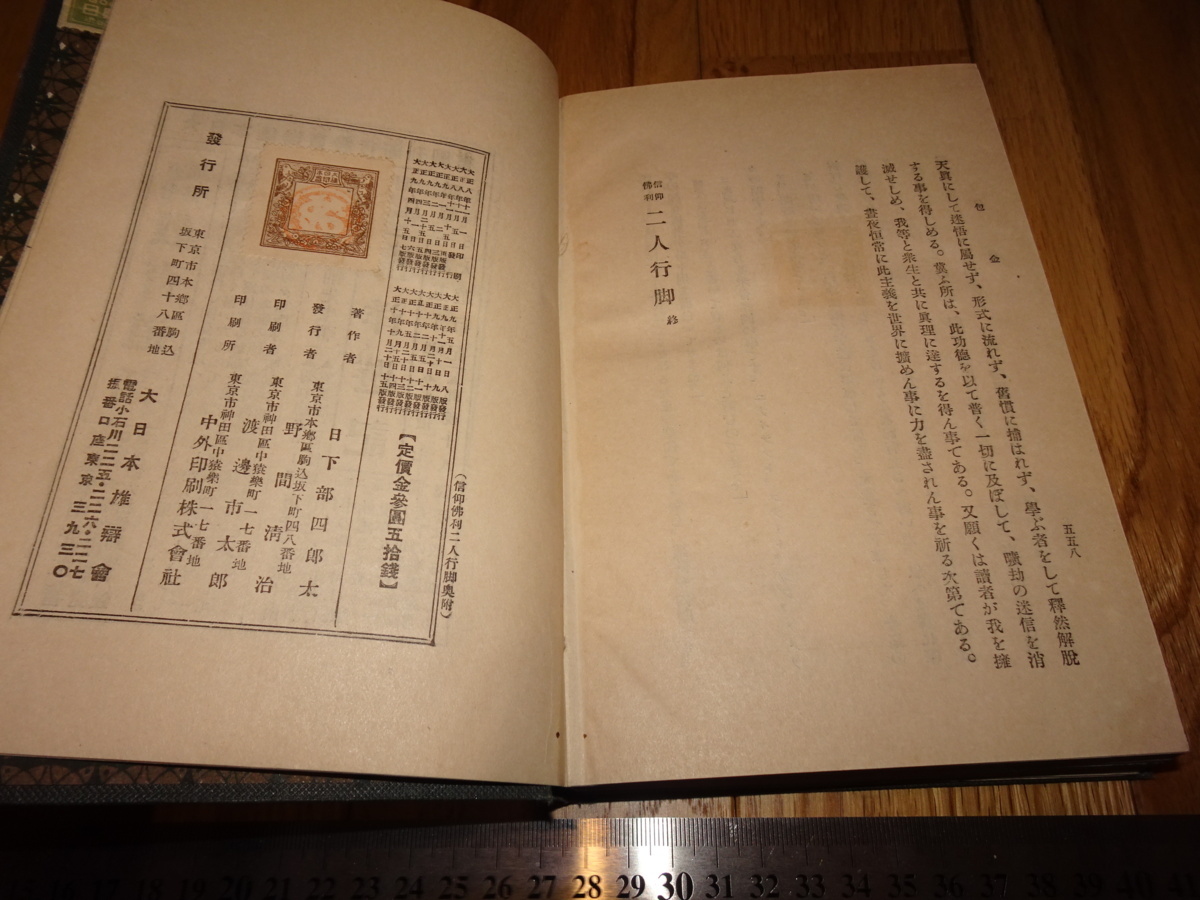 五五八
天眞にして迷悟に屬せず、形式に流れず、舊慣に捕はれず、學ぶ者をして釋然解脫
する事を得しめる。冀ふ所は、此功德を以て普く一切に及ぼして、曠劫の迷信を消
滅せしめ、我等と衆生と共に眞理に達するを得ん事である。又願くは讀者が我を擁
護して、晝夜恒常に此主義を世界に擴めん事に力を盡されん事を祈る次第である。
信仰佛利 二人行脚 終
(信仰佛利二人行脚奧附)
大正九年五月一日八版發行
大正十年九月二十日十五版發行
【定價金參圓五拾錢】
著作者 日下部四郎太
東京市本鄕區駒込坂下町四八番地
發行者 野間淸治
東京市神田區中猿樂町一七番地
印刷者 渡邊市太郎
東京市神田區中猿樂町一七番地
印刷所 中外印刷株式會社
發行所
東京市本鄕區駒込
坂下町四十八番地
大日本雄辯會
電話小石川二二五・二二六・二二七
振替口座東京三九三〇
15 16 17 18 19 20 21 22 23 24 25 26 27 28 29 30 31 32 33 34 35 36 37 38 39 40 41